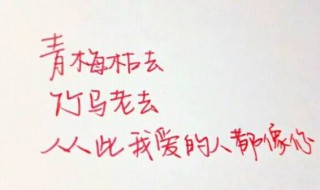 青梅枯去
竹马老去
从此我爱的人都像你